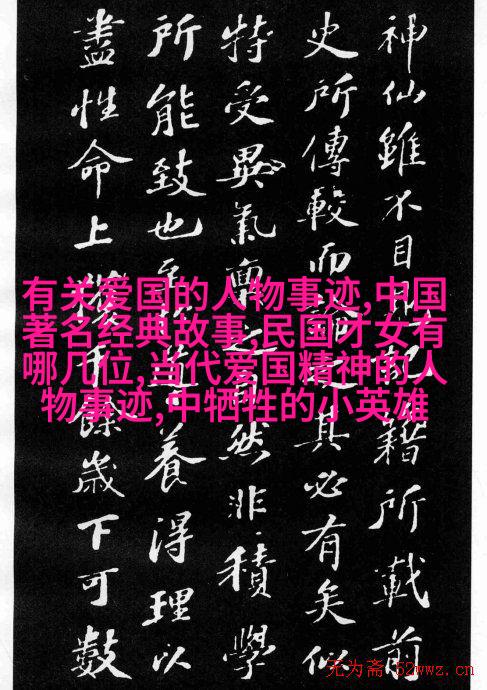 神仙雖不目見記籍所載前
史所傳較而論之其必有矣似
特受異氣稟之自然非積學
所能致也至養得理以
盡性命上獲千餘歲下可數
有关爱国的人物事迹,中国
著名经典故事,民国才女有
哪几位,当代爱国精神的人
物事迹,中牺牲的小英雄
无为斋·52wwz.cn